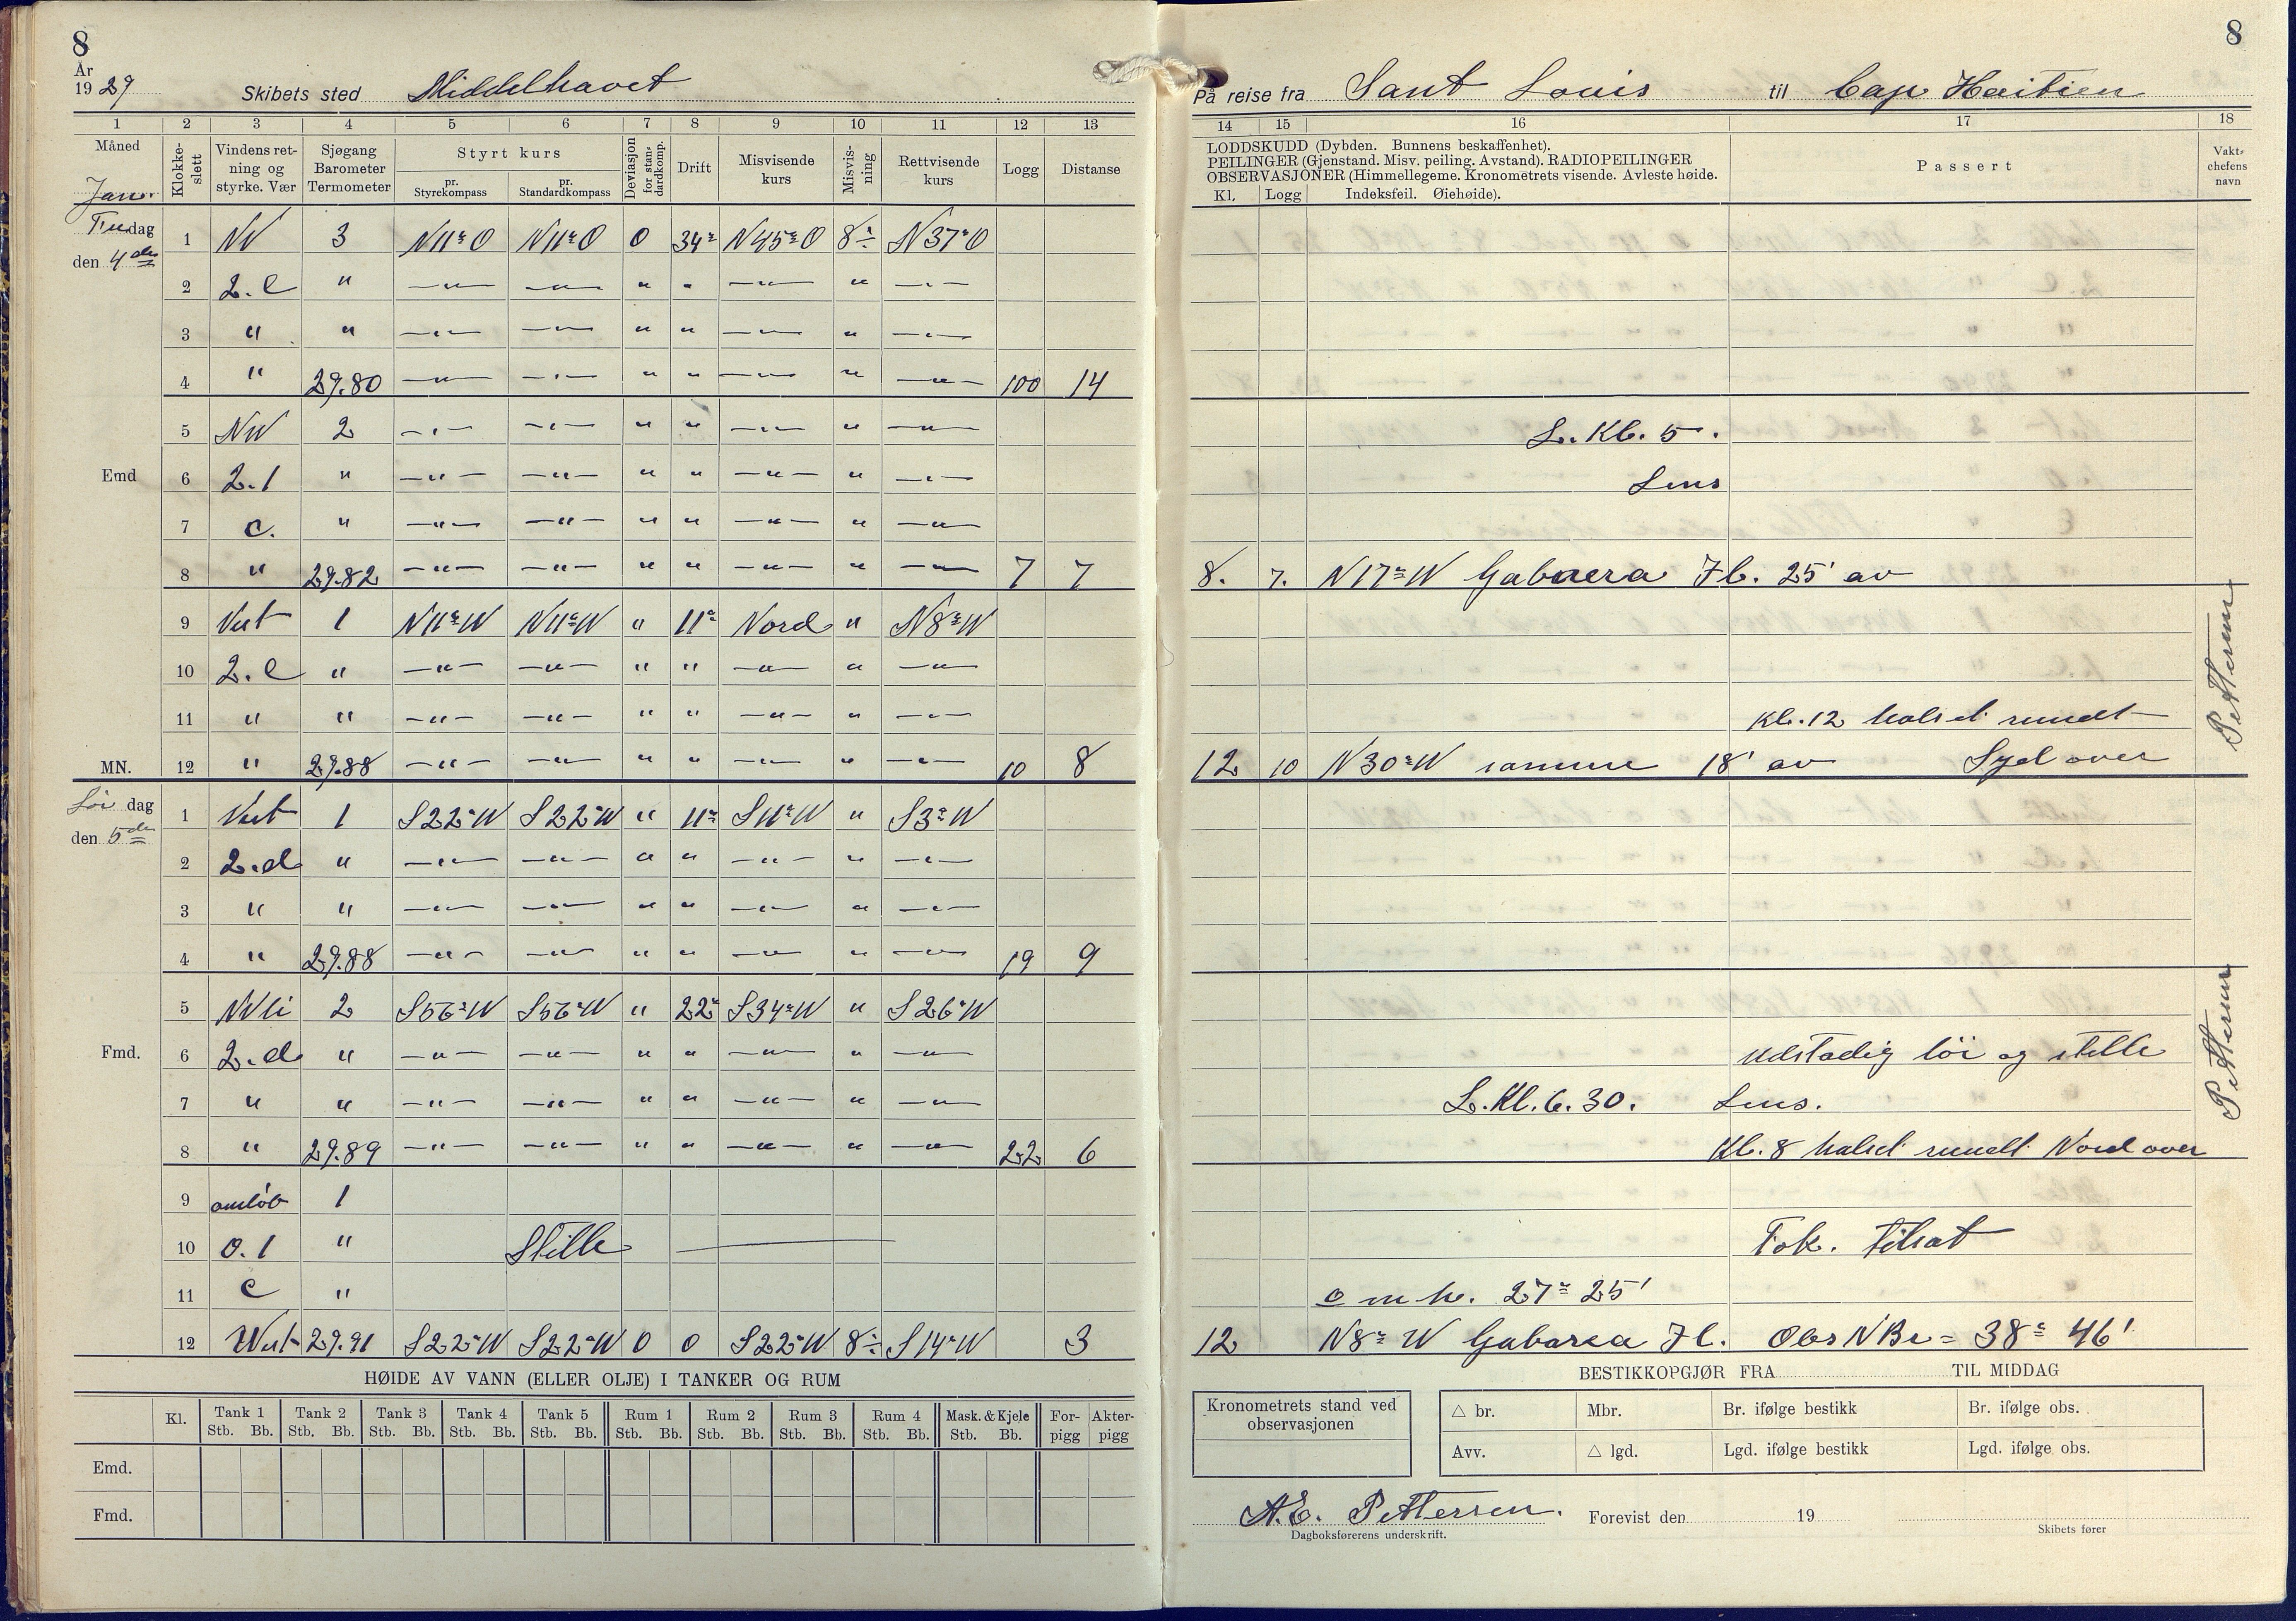 8
År
1929 Skibets sted Middelhavet
1 2 3 4 5 6 7 8 9 10 11 12 13
Måned
Janr.
Klokke-
slett
Vindens ret-
ning og
styrke. Vær
Sjøgang
Barometer
Termometer
Styrt kurs
pr.
Styrekompass
pr.
Standardkompass
Deviasjon
for stan-
dardkomp.
Drift
Misvisende
kurs
Misvis-
ning
Rettvisende
kurs
Logg
Distanse
dag
den 4de
1 3 N11°O N11°O 0 34° N45°O 8÷ N37°O
2 2.c " —"— —"— " " —"— " —"—
3 " " —"— —"— " " —"— " —"—
4 " 29.80 —"— —"— " " —"— " —"— 100 14
5 NW 2 —"— —"— " " —"— " —"—
Emd
6 2.1 " —"— —"— " " —"— " —"—
7 c. " —"— —"— " " —"— " —"—
8 " 29.82 —"— —"— " " —"— " —"— 7 7
9 Vest 1 N11°W N11°W " 11° Nord " N8°W
10 2.c " —"— —"— " " —"— " —"—
11 " " —"— —"— " " —"— " —"—
MN. 12 " 29.88 —"— —"— " " —"— " —"— 10 8
Lör dag
den 5de
1 Vest 1 S22°W S22°W " 11° S11°W " S3°W
2 2.d " —"— —"— " " —"— " —"—
3 " " —"— —"— " " —"— " —"—
4 " 29.88 —"— —"— " " —"— " —"— 19 9
5 2 S56°W S56°W " 22° S34°W " S26°W
Fmd.
6 2.d " —"— —"— " " —"— " —"—
7 " " —"— —"— " " —"— " —"—
8 " 29.89 —"— —"— " " —"— " —"— 22 6
9 omlöb 1
10 0.1 " Stille
11 c "
12 West 29.91 S22°W S22°W 0 0 S22°W 8÷ S14°W 3
HØIDE AV VANN (ELLER OLJE) I TANKER OG RUM
Kl. Tank 1 Tank 2 Tank 3 Tank 4 Tank 5 Rum 1 Rum 2 Rum 3 Rum 4 Mask. & Kjele For-
pigg Akter-
pigg
Stb. Bb. Stb. Bb. Stb. Bb. Stb. Bb. Stb. Bb. Stb. Bb. Stb. Bb. Stb. Bb. Stb. Bb. Stb. Bb.
Emd.
Fmd.
8
På reise fra Sant Louis til Cap Haitien
14 15 16 17 18
LODDSKUDD (Dybden. Bunnens beskaffenhet).
PEILINGER (Gjenstand. Misv. peiling. Avstand). RADIOPEILINGER
OBSERVASJONER (Himmellegeme. Kronometrets visende. Avleste høide.
Kl. Logg Indeksfeil. Øiehøide).
Passert
Vakt-
chefens
navn
L. Kl. 5.
Lens
8. 7. N17°W Fl. 25' av
Kl. 12 halset rundt
12 10 N30°W samme 18' av Syd over
Pettersen
Ustadig löi og stille
L. Kl. 6.30. Lens.
Kl. 8 halset rundt Nord over
Pettersen
Tok. tilsat
o m h. 27° 25'
12 N8°W Fl. Obs N Br = 38° 46'
BESTIKKOPGJØR FRA TIL MIDDAG
Kronometrets stand ved
observasjonen
△ br. Mbr. Br. ifølge bestikk Br. ifølge obs.
Avv. △ lgd. Lgd. ifølge bestikk Lgd. ifølge obs.
A.E. Pettersen.
Dagboksførerens underskrift.
Forevist den 19
Skibets fører